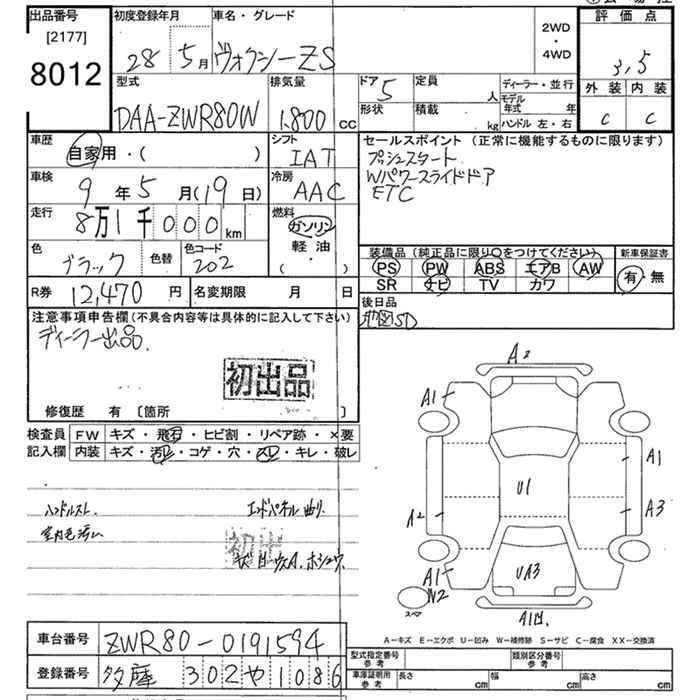 出品番号 初度登録年月 車名・グレード 評価点
[2177] 28 5月 ヴォクシーZS 2WD・4WD 3.5
8012 外装 内装
型式 排気量 ドア 5 定員 人 ディーラー・並行 C C
DAA-ZWR80W 1,800 cc 形状 積載 kg モデル年式 年
ハンドル 左・右
車歴 自家用・( ) シフト IAT セールスポイント (正常に機能するものに限ります)
プッシュスタート
車検 9年5月(19日) 冷房 AAC Wパワースライドドア
ETC
走行 8万1千000km 燃料 ガソリン
軽油・
( )
色 ブラック 色替 色コード 202
装備品 (純正品に限り○をつけてください) 新車保証書
PS PW ABS エアB AW 有・無
SR ナビ TV カワ
R券 12,470円 名変期限 月 日 後日品
地図SD
注意事項申告欄 (不具合内容等は具体的に記入して下さい)
ディーラー出品.
初出品
修復歴 有 [箇所 ]
検査員 FW キズ・飛石・ヒビ割・リペア跡・×要
記入欄 内装 キズ・汚レ・コゲ・穴・スレ・キレ・破レ
ハンドルスレ. エンドパネル曲り.
室内毛汚レ
A2
A1
A1
U1
A2 A3
A1 UA3
W2
スペア
A1凹.
A-キズ E-エクボ U-凹み W-補修跡 S-サビ C-腐食 XX-交換済
車台番号 ZWR80-0191594 型式指定番号 参考 類別区分番号 参考
登録番号 多摩 302 や 1086 車庫証明用 参考 長さ cm 幅 cm 高さ cm